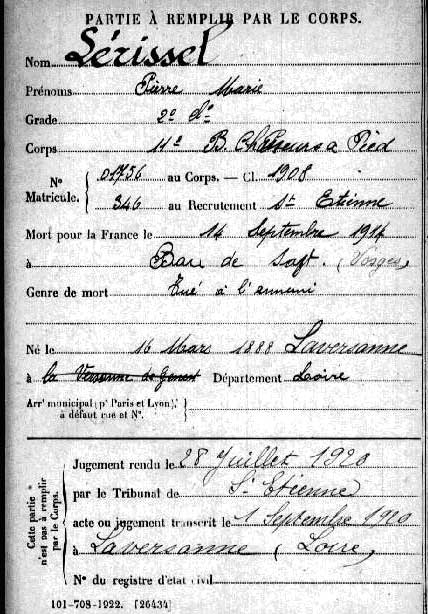 PARTIE À REMPLIR PAR LE CORPS.
Nom Lérissel
Prénoms Pierre Marie
Grade 2e cl.
Corps 11e B. Chasseurs à Pied
No Matricule. 01756 au Corps. — Cl. 1908
346 au Recrutement St Etienne
Mort pour la France le 14 Septembre 1914
à Ban de Sapt. (Vosges)
Genre de mort Tué à l'ennemi
Né le 16 Mars 1888 Laversanne
à la Versanne de Genest Département Loire
Arrt municipal (pr Paris et Lyon),
à défaut rue et No.
Cette partie n'est pas à remplir par le Corps.
Jugement rendu le 28 Juillet 1920
par le Tribunal de St Etienne
acte ou jugement transcrit le 1 Septembre 1920
à Laversanne (Loire)
No du registre d'état civil
101-708-1922. [26434]